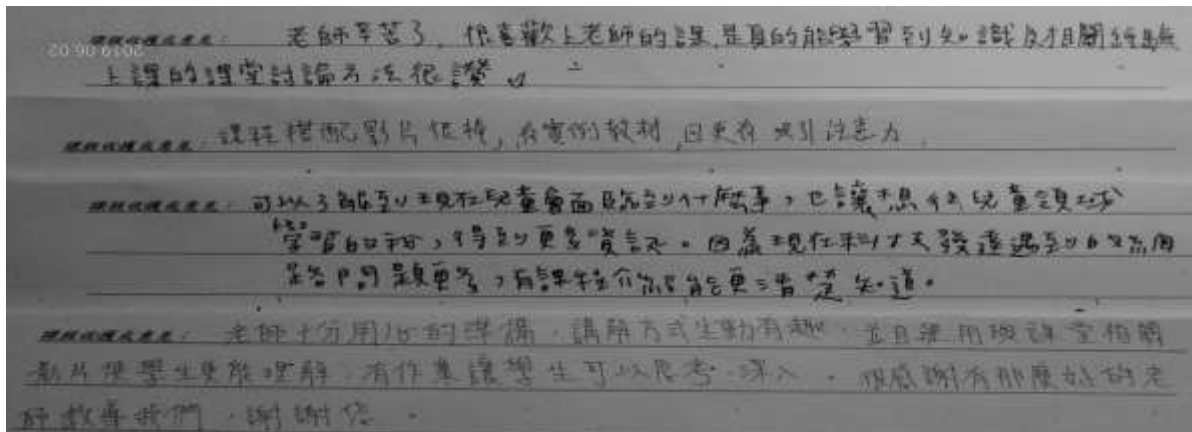 課程收穫或意見：老師辛苦了，很喜歡上老師的課，是真的能學習到知識及相關經驗
上課的課堂討論方法很讚
課程收穫或意見：課程搭配影片很棒，有實例教材，且更有吸引注意力。
課程收穫或意見：可以了解到現在兒童會面臨到什麼事，也讓想往兒童領域
學習的我，得到更多資訊。因為現在科技發達遇到的
問題更多，有課程介紹能更清楚知道。
課程收穫或意見：老師十分用心的準備，講解方式生動有趣，並且運用與課堂相關
影片使學生更能理解，有作業讓學生可以思考、深入。很感謝有那麼好的老
師教導我們，謝謝您。